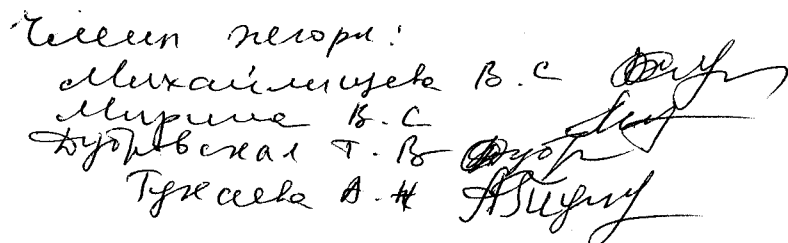 Члены жюри:
Михайлищева В.С
Мирина В.С
Дубровская Т.В
Тукаева А.Н